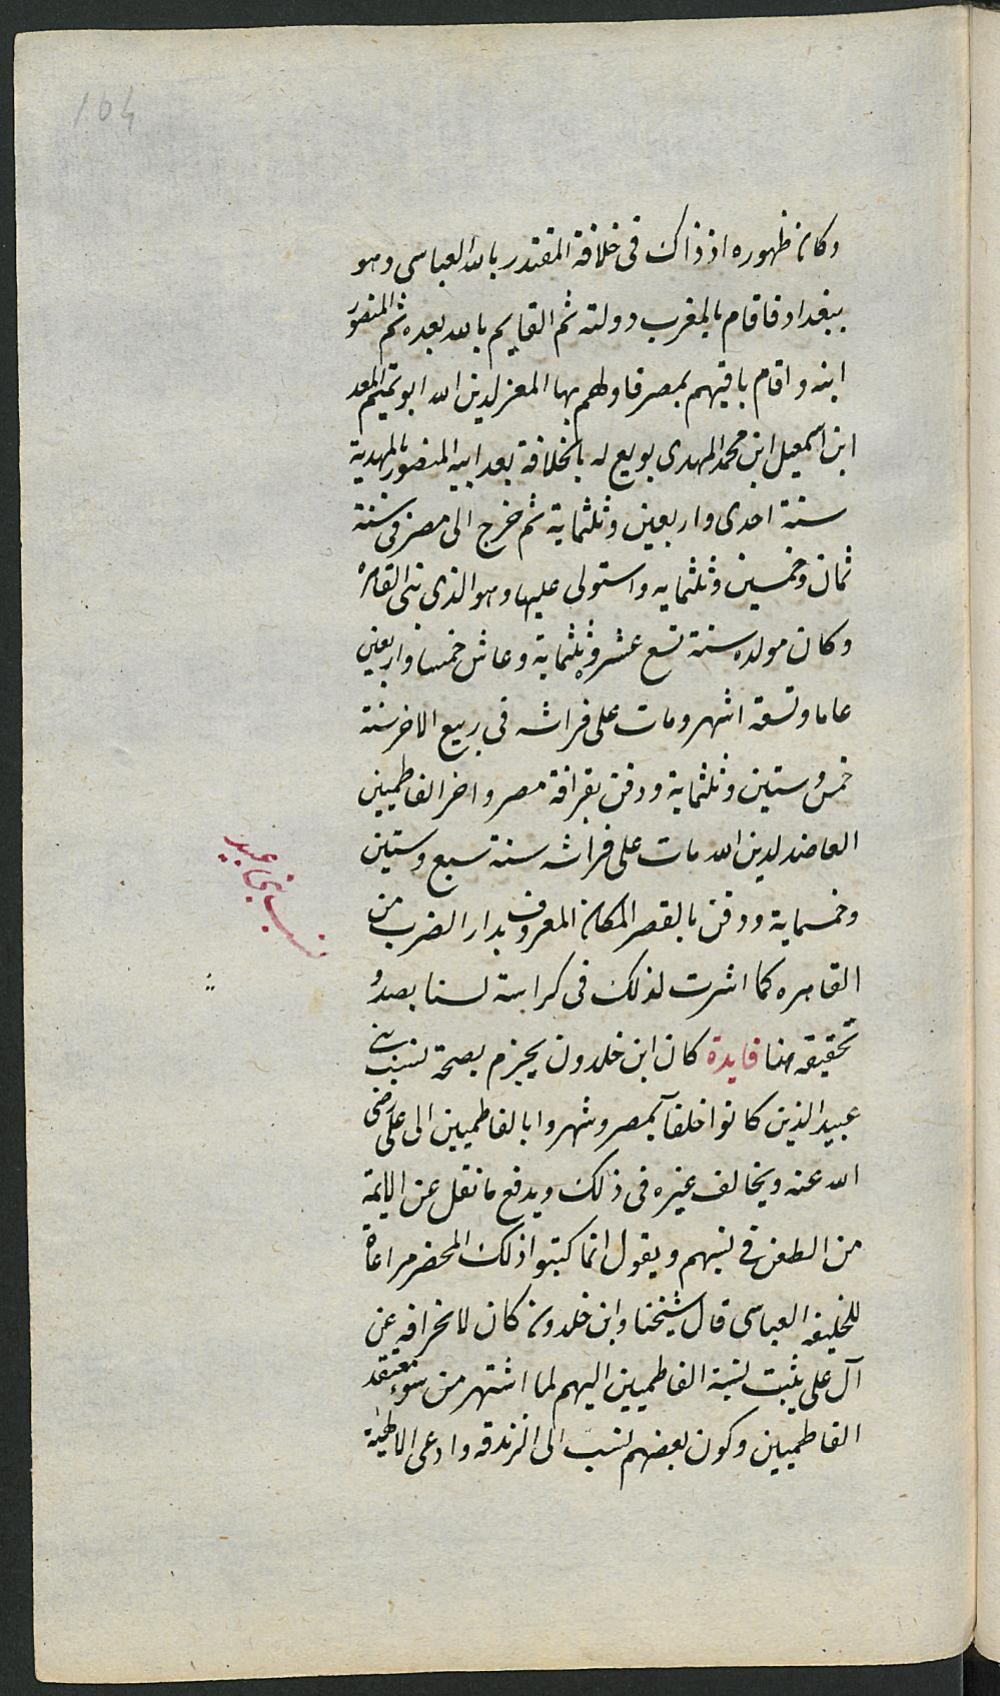 104
وكان ظهوره اذ ذاك فى خلافة المقتدر بالله العباسى وهو
ببغداد فاقام بالمغرب دولته ثم القايم بالله بعده ثم المنصور
ابنه واقام باقيهم بمصر فاولهم بها المعز لدين الله ابو تميم المعد
ابن اسمعيل ابن محمد المهدى بويع له بالخلافة بعد ابيه المنصور بالمهدية
سنة احدى واربعين وثلثماية ثم خرج الى مصر فى سنة
ثمان وخمسين وثلثمايه واستولى عليها وهو الذى بنى القاهره
وكان مولده سنة تسع عشر وثلثماية وعاش خمسا واربعين
عاما وتسعة اشهر ومات على فراشه فى ربيع الاخر سنة
خمس وستين وثلثماية ودفن بقرافة مصر واخر الفاطميين
العاضد لدين الله مات على فراشه سنة سبع وستين
وخمسماية ودفن بالقصر المكان المعروف بدار الضرب من
القاهره كما اشرت لذلك فى كراسة لسنا بصدد
تحقيقه هنا فايدة كان ابن خلدون يجزم بصحة نسب بنى
عبيد الذين كانوا خلفآ بمصر وشهروا بالفاطميين الى على رضى
الله عنه ويخالف غيره فى ذلك ويدفع ما نقل عن الايمة
من الطعن فى نسبهم ويقول انما كتبوا ذلك المحضر مراعاة
للخليفه العباسى قال شيخنا وابن خلدون كان لانحرافه عن
آل على يثبت نسبة الفاطميين اليهم لما اشتهر من سوء معتقد
الفاطميين وكون بعضهم نسب الى الزندقه وادعى الالهية
نسب بنى عبيد